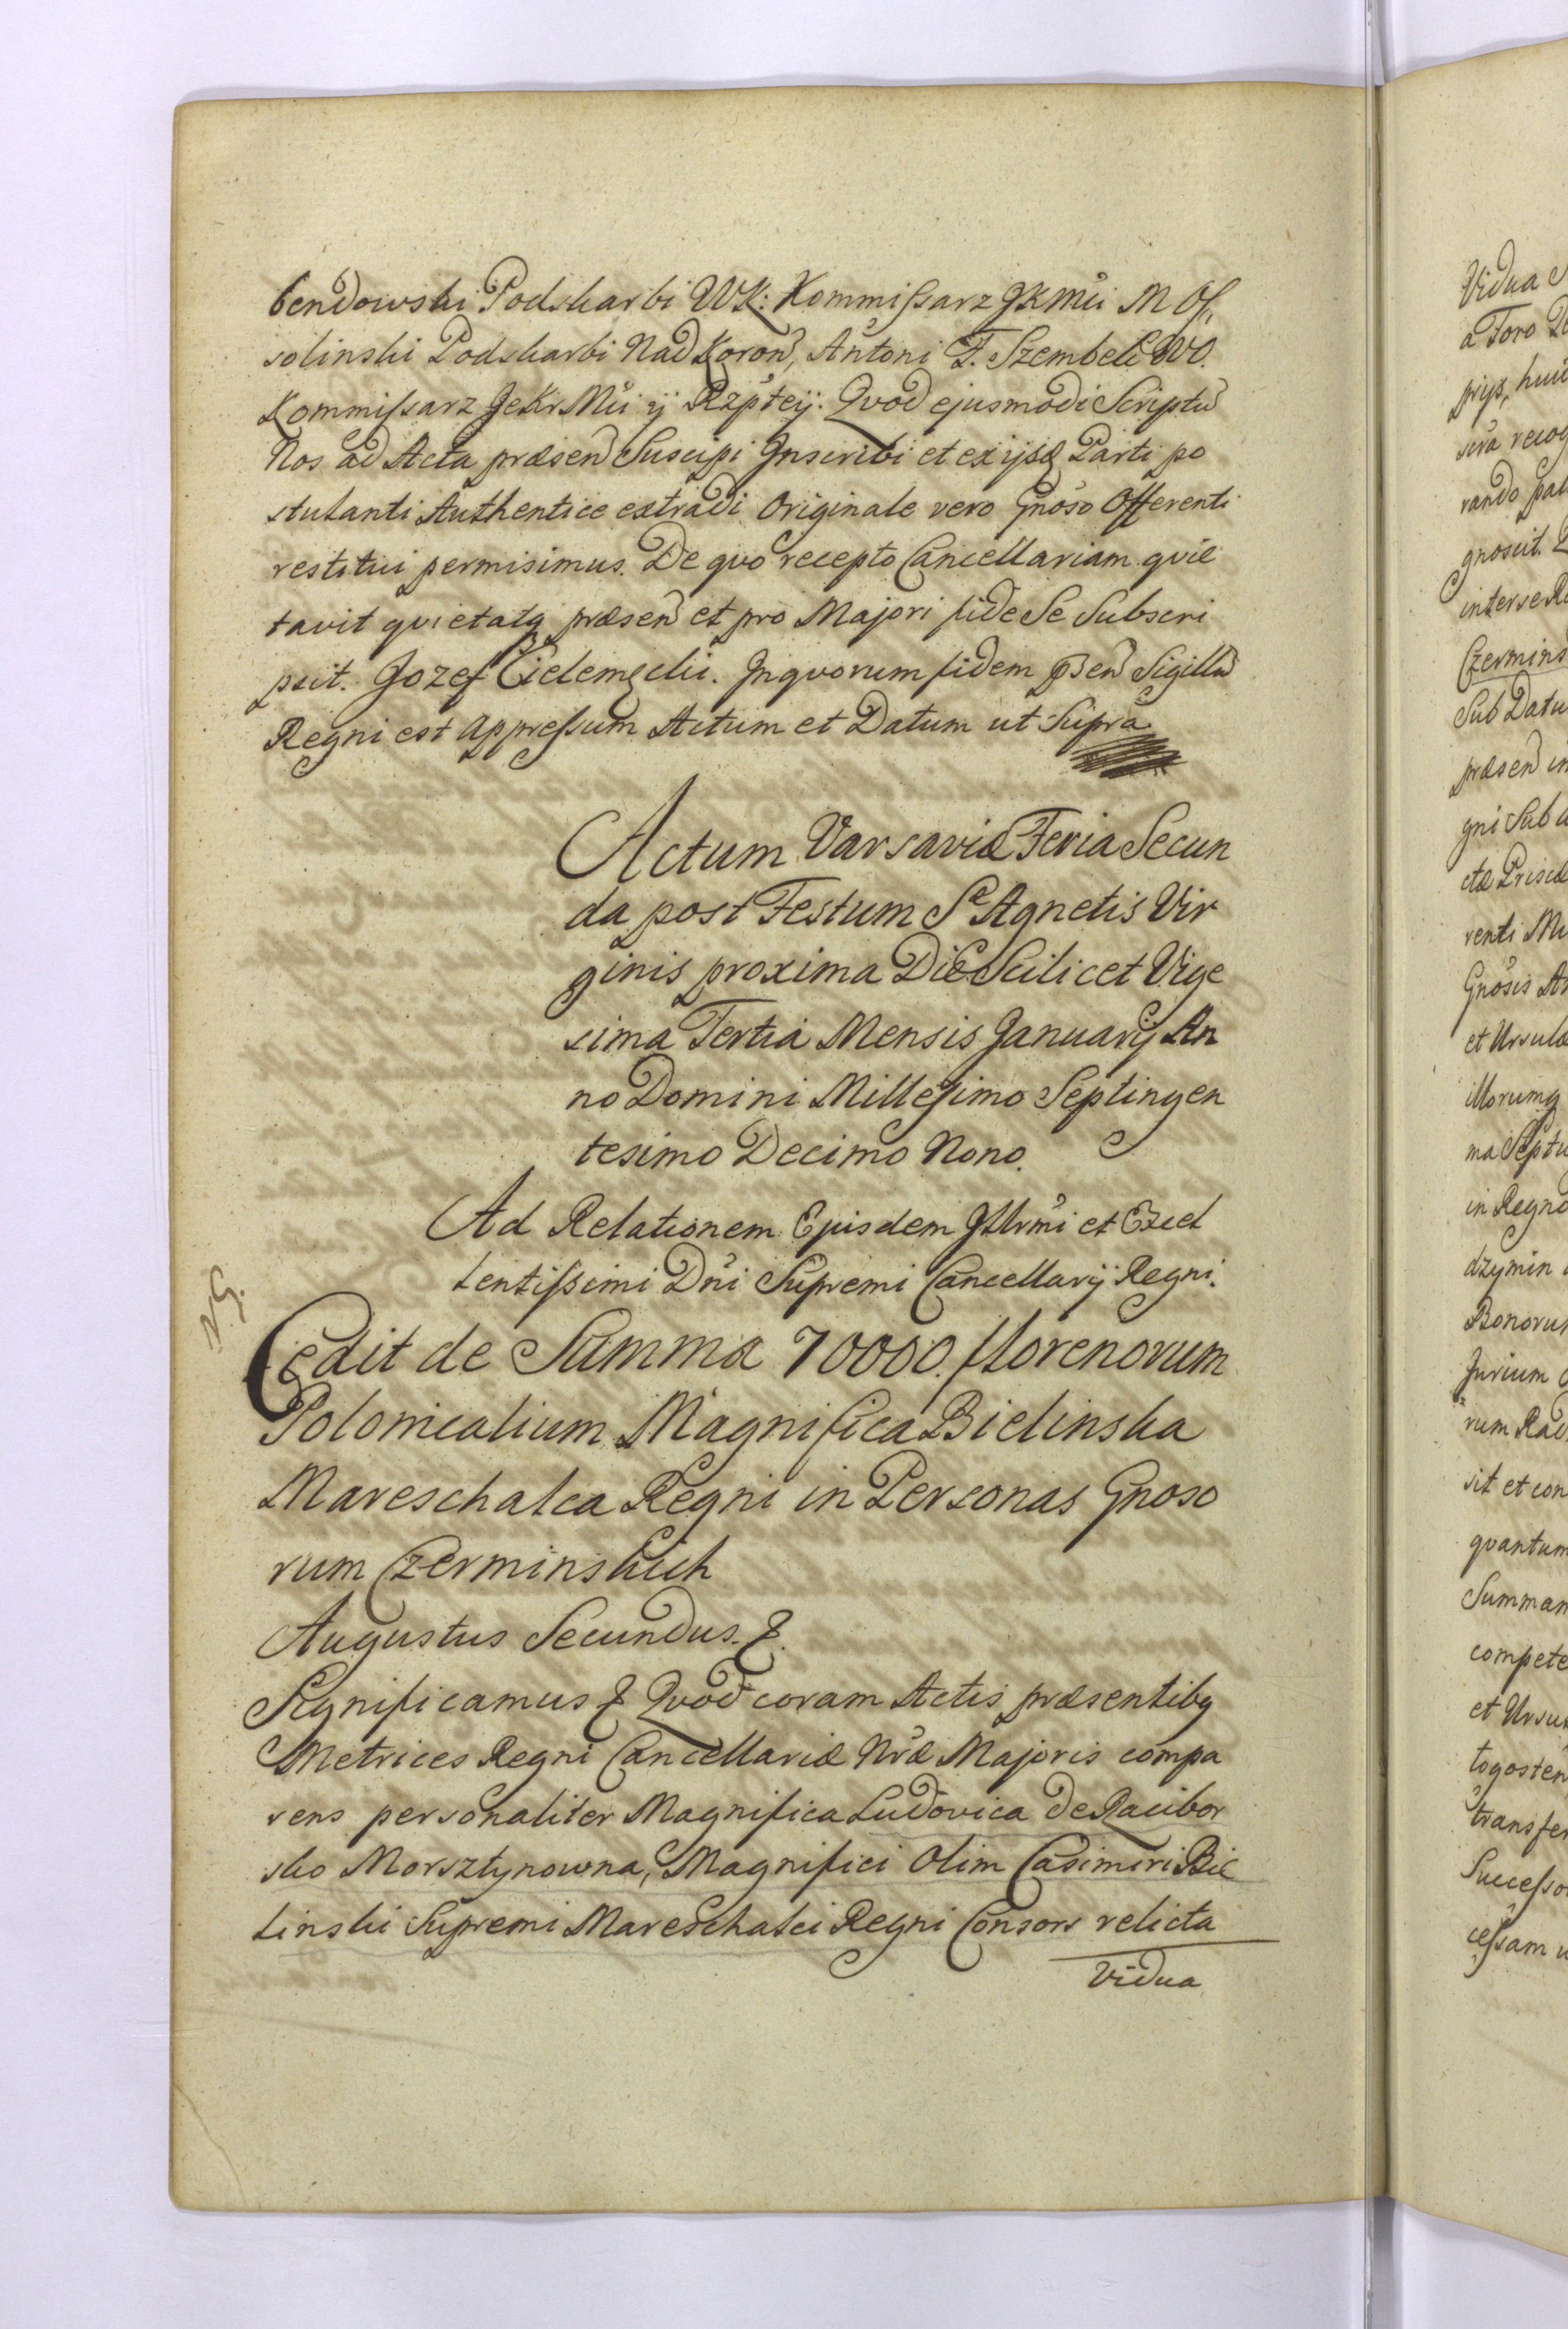 bendowski Podskarbi WK: Kommissarz JKMci M Os,
solinski Podskarbi Nad Koron, Antoni F. Szembek WO.
Kommissarz JeKr Mci ij Rzpteij. Qvod ejusmodi Scriptu
Nos ad Acta præsen Suscipi Inscribi et ex ijsdq Parti po
stulanti Authentice extradi Originale vero Gnoso Offerenti
restitui permisimus. De qvo recepto Cancellariam qvie
tavit qvietatq præsen et pro Majori fide Se Subscri
psit. Jozef In qvorum fidem pnsen Sigillu
Regni est appressum Actum et Datum ut Supra
Actum Varsaviæ Feria Secun
da post Festum Sæ Agnetis Vir
ginis proxima Die Scilicet Vige
sima Tertia Mensis Januarij An
no Domini Millesimo Septingen
tesimo Decimo Nono.
Ad Relationem Ejusdem Illrmi et Excel
lentissimi Dni Supremi Cancellarij Regni.
N.G.
Cedit de Summa 70000. florenorum
Polonicalium Magnifica Bielinska
Mareschalca Regni in Personas Gnoso
rum Czerminskich
Augustus Secundus. &.
Significamus & Qvod coram Actis præsentibq
Metrices Regni Cancellariæ Nræ Majoris compa
rens personaliter Magnifica Ludovica de Racibor
sko Morsztynowna, Magnifici Olim Casimiri Bie
linski Supremi Mareschalci Regni Consors relicta
Vidua
Vidua
a Foro
pijs, huic
rando
gnoscit.
inter se
Czermins
Sub Datu
præsen in
gni Sub
renti
Gnosis
et Ursulæ
illorumq
in Regno
dzymin
Bonorum
Jurium
sit et con
qvantum
Summam
compete
et Ursu
transfer
Successo
cessam